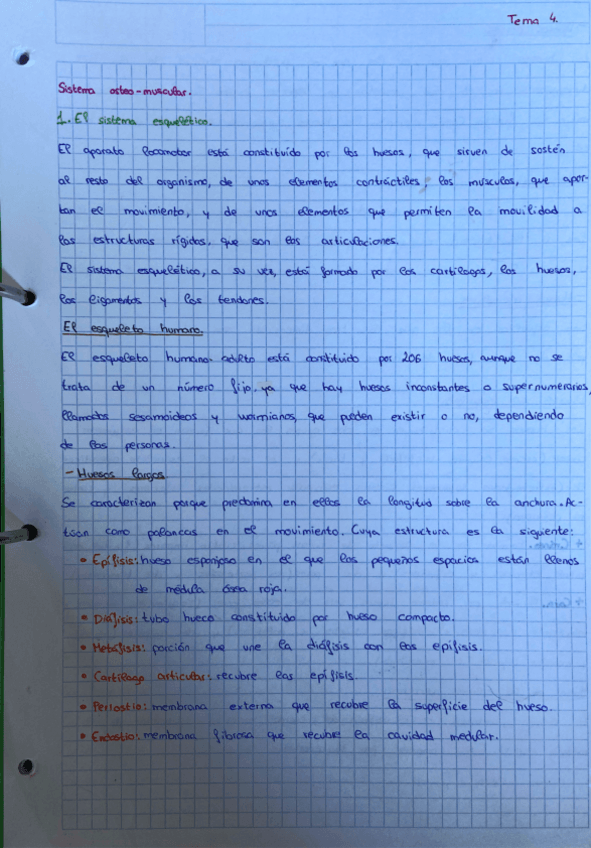 Tema 4.
Sistema osteo-muscular.
1. El sistema esquelético.
El aparato locomotor está constituido por los huesos, que sirven de sostén
al resto del organismo, de unos elementos contráctiles, los músculos, que apor-
tan el movimiento, y de unos elementos que permiten la movilidad a
las estructuras rígidas, que son las articulaciones.
El sistema esquelético, a su vez, está formado por los cartílagos, los huesos,
los ligamentos y los tendones.
El esqueleto humano.
El esqueleto humano adulto está constituido por 206 huesos, aunque no se
trata de un número fijo, ya que hay huesos inconstantes o supernumerarios,
llamados sesamoideos y wormianos, que pueden existir o no, dependiendo
de las personas.
- Huesos largos
Se caracterizan porque predomina en ellos la longitud sobre la anchura. Ac-
túan como palancas en el movimiento. Cuya estructura es la siguiente:
• Epífisis: hueso esponjoso en el que los pequeños espacios están llenos
de médula ósea roja.
• Diáfisis: tubo hueco constituido por hueso compacto.
• Metáfisis: porción que une la diáfisis con las epífisis.
• Cartílago articular: recubre las epífisis.
• Periostio: membrana externa que recubre la superficie del hueso.
• Endostio: membrana fibrosa que recubre la cavidad medular.